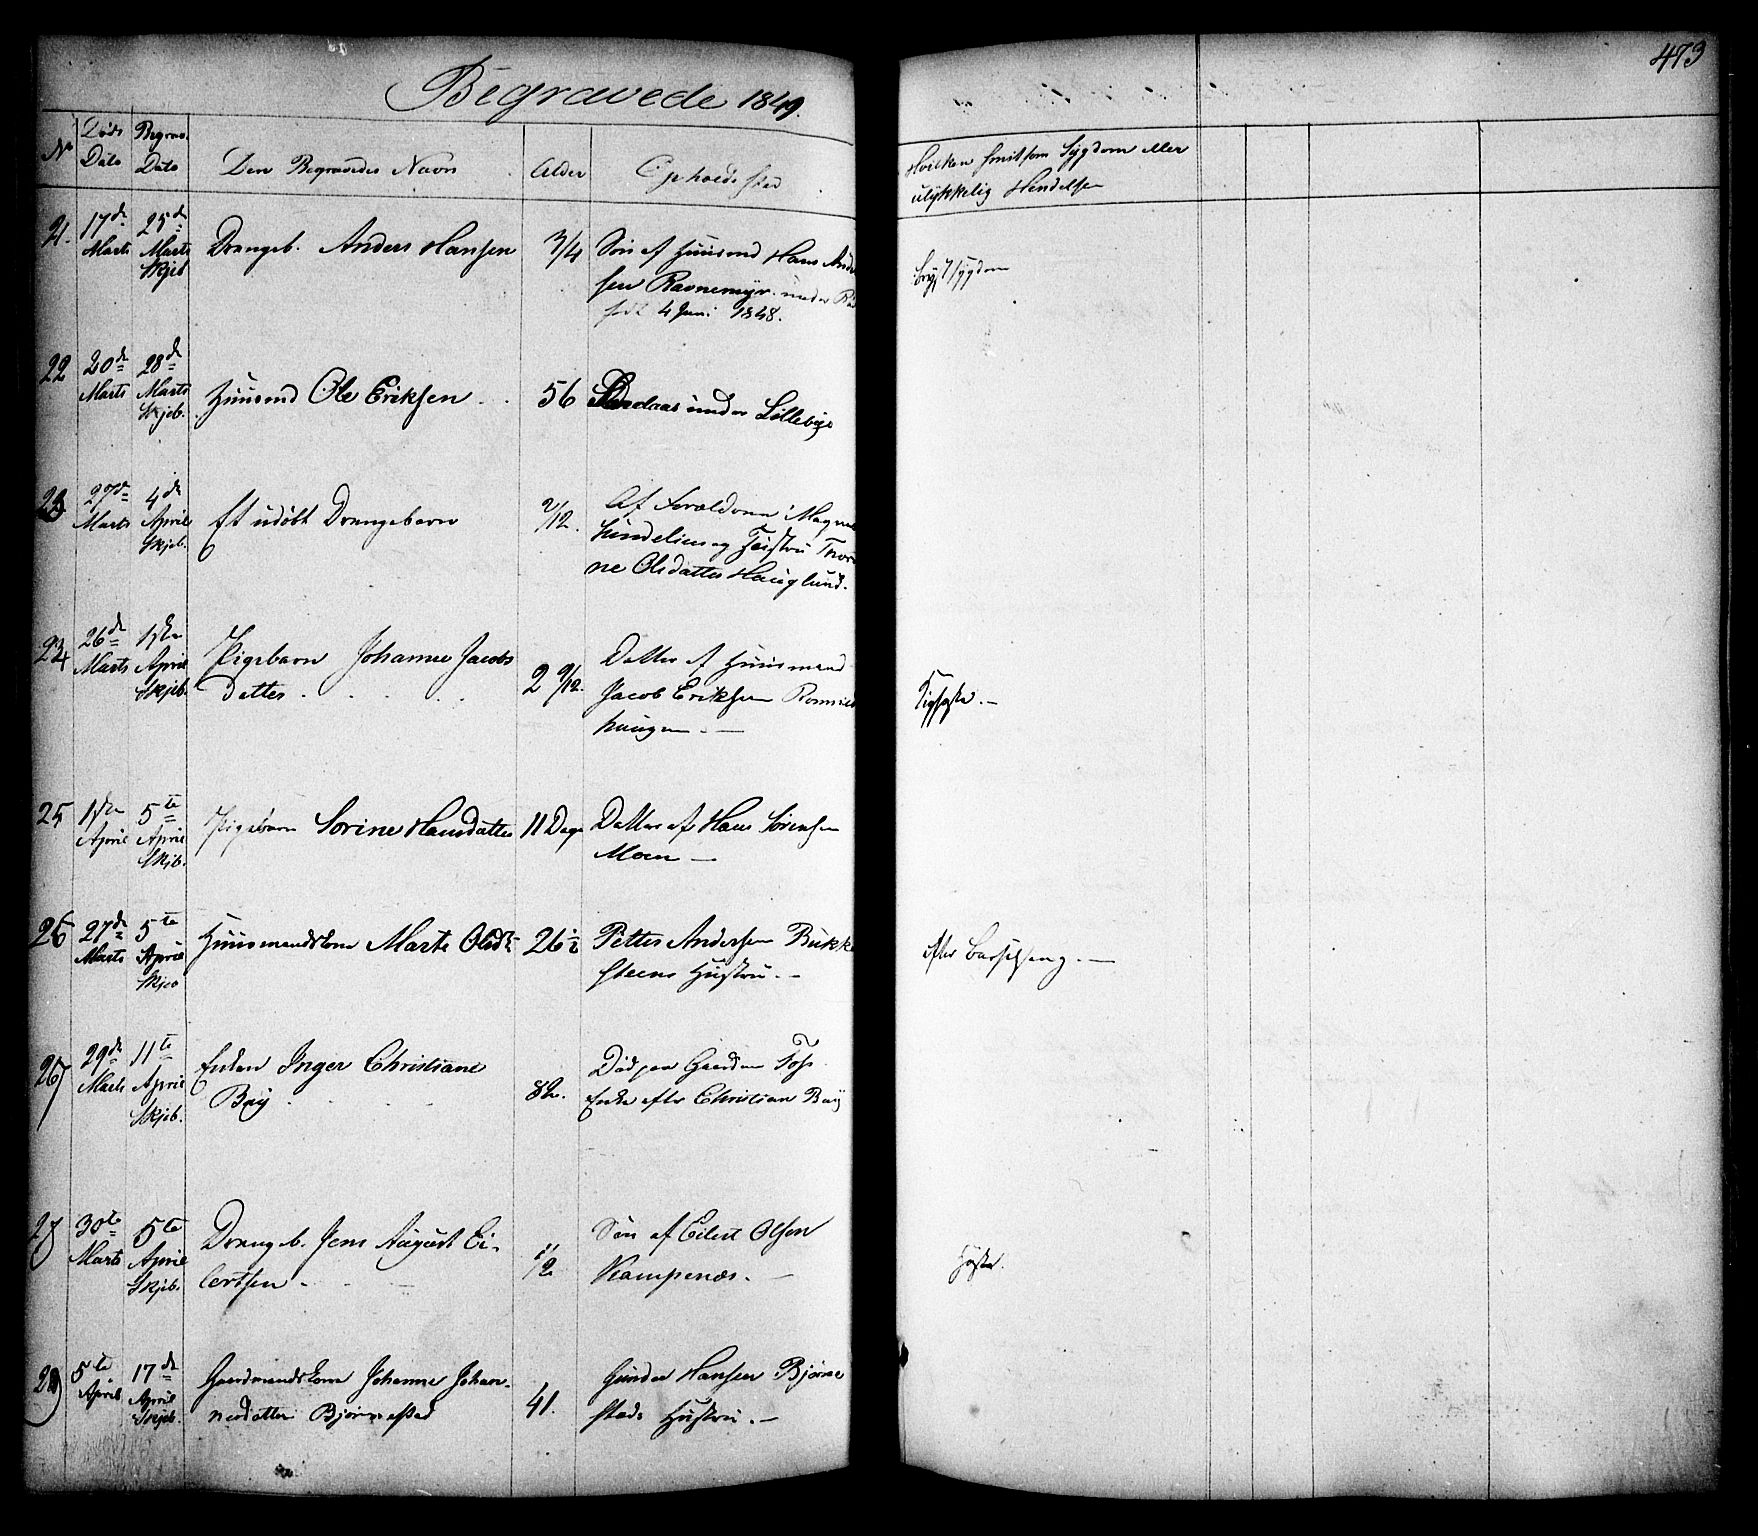 Begravede 1849.
473
No
Døds Dato
Begrav. Dato
Den Begravedes Navn
Alder
Opholdssted
Hvilken smitsom Sygdom eller
ulykkelig Hendelse
21.
17de Marts
25de Marts Skjeb.
Drengeb. Anders Hansen
3/4
Søn af Huusmd Hans Ander
sen Ravnemyr under
født 4 Juni 1848.
Brystsygdom
22
20de Marts
28de Marts Skjeb.
Huusmd Ole Eriksen
56
under Lillebye
23
27de Marts
4de April Skjeb.
Et udøbt Drengebarn
2/12.
Af Forældrene Magnus
og Hustru
ne Olsdatter Hauglund.
24
26de Marts
1ste April Skjeb.
Pigebarn Johanne Jacobs
datter
2 9/12.
Datter af Huusmand
Jacob Eriksen
haugen.
25
1ste April
5te April Skjb.
Pigebarn Sorine Hansdatter
11 Dage
Datter af Hans Sørensen
Moen
26
27de Marts
5te April Skjeb
Huusmandskone Marte Olsdt
26½
Petter Andersen Bukke
steens Hustru.
efter Barselseng.
27
29de Marts
11te April Skjeb.
Enken Inger Christiane
Baÿ
82.
Død paa Gaarden
Enke efter Christian Baÿ
28
30te Marts
5te April Skjeb.
Drengeb. Jens August Ei-
lertsen
1/2
Søn af Eilert Olsen
Kampenæs.
Hoste.
29
5te April
17de April Skjeb.
Gaardmandskone Johanne Johan-
nesdatter Bjørnestad
41.
Gunder Hansen Bjørne
stads Hustru.